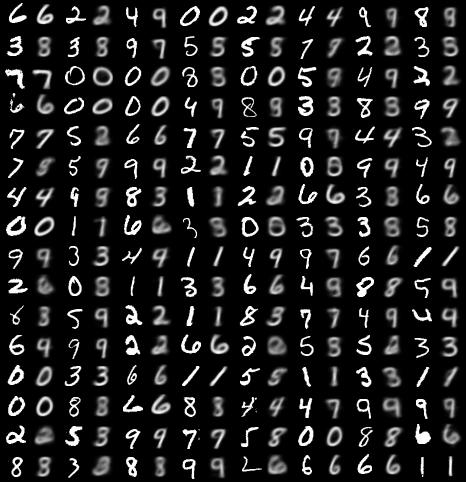 6 6 2 2 4 9 0 0 2 2 4 4 9 9 8 9
3 8 3 8 9 7 5 5 5 8 7 7 2 2 3 5
7 7 0 0 0 0 8 8 0 0 5 9 4 9 2 2
6 6 0 0 0 0 4 9 8 8 3 3 8 8 9 9
7 7 5 2 6 6 7 7 5 5 9 9 4 4 3 2
7 8 5 9 9 9 2 2 1 1 0 8 9 9 4 9
4 4 9 9 8 3 1 1 2 2 6 6 3 8 6 6
0 0 1 1 6 6 3 8 0 0 3 3 3 8 5 8
9 9 3 3 4 9 1 1 4 9 9 7 6 6 1 1
2 6 0 8 1 1 3 3 6 6 4 9 8 8 5 9
8 8 5 9 2 2 1 1 8 3 7 7 4 9 4 9
6 9 9 9 2 2 6 6 2 5 8 5 2 3 3
0 0 3 3 6 6 1 1 5 5 1 1 3 3 1 1
0 0 8 8 6 6 8 8 4 4 4 7 9 9 9 9
2 5 3 9 9 7 7 5 8 0 0 8 8 6 6
8 8 3 8 8 8 9 9 2 6 6 6 6 6 1 1